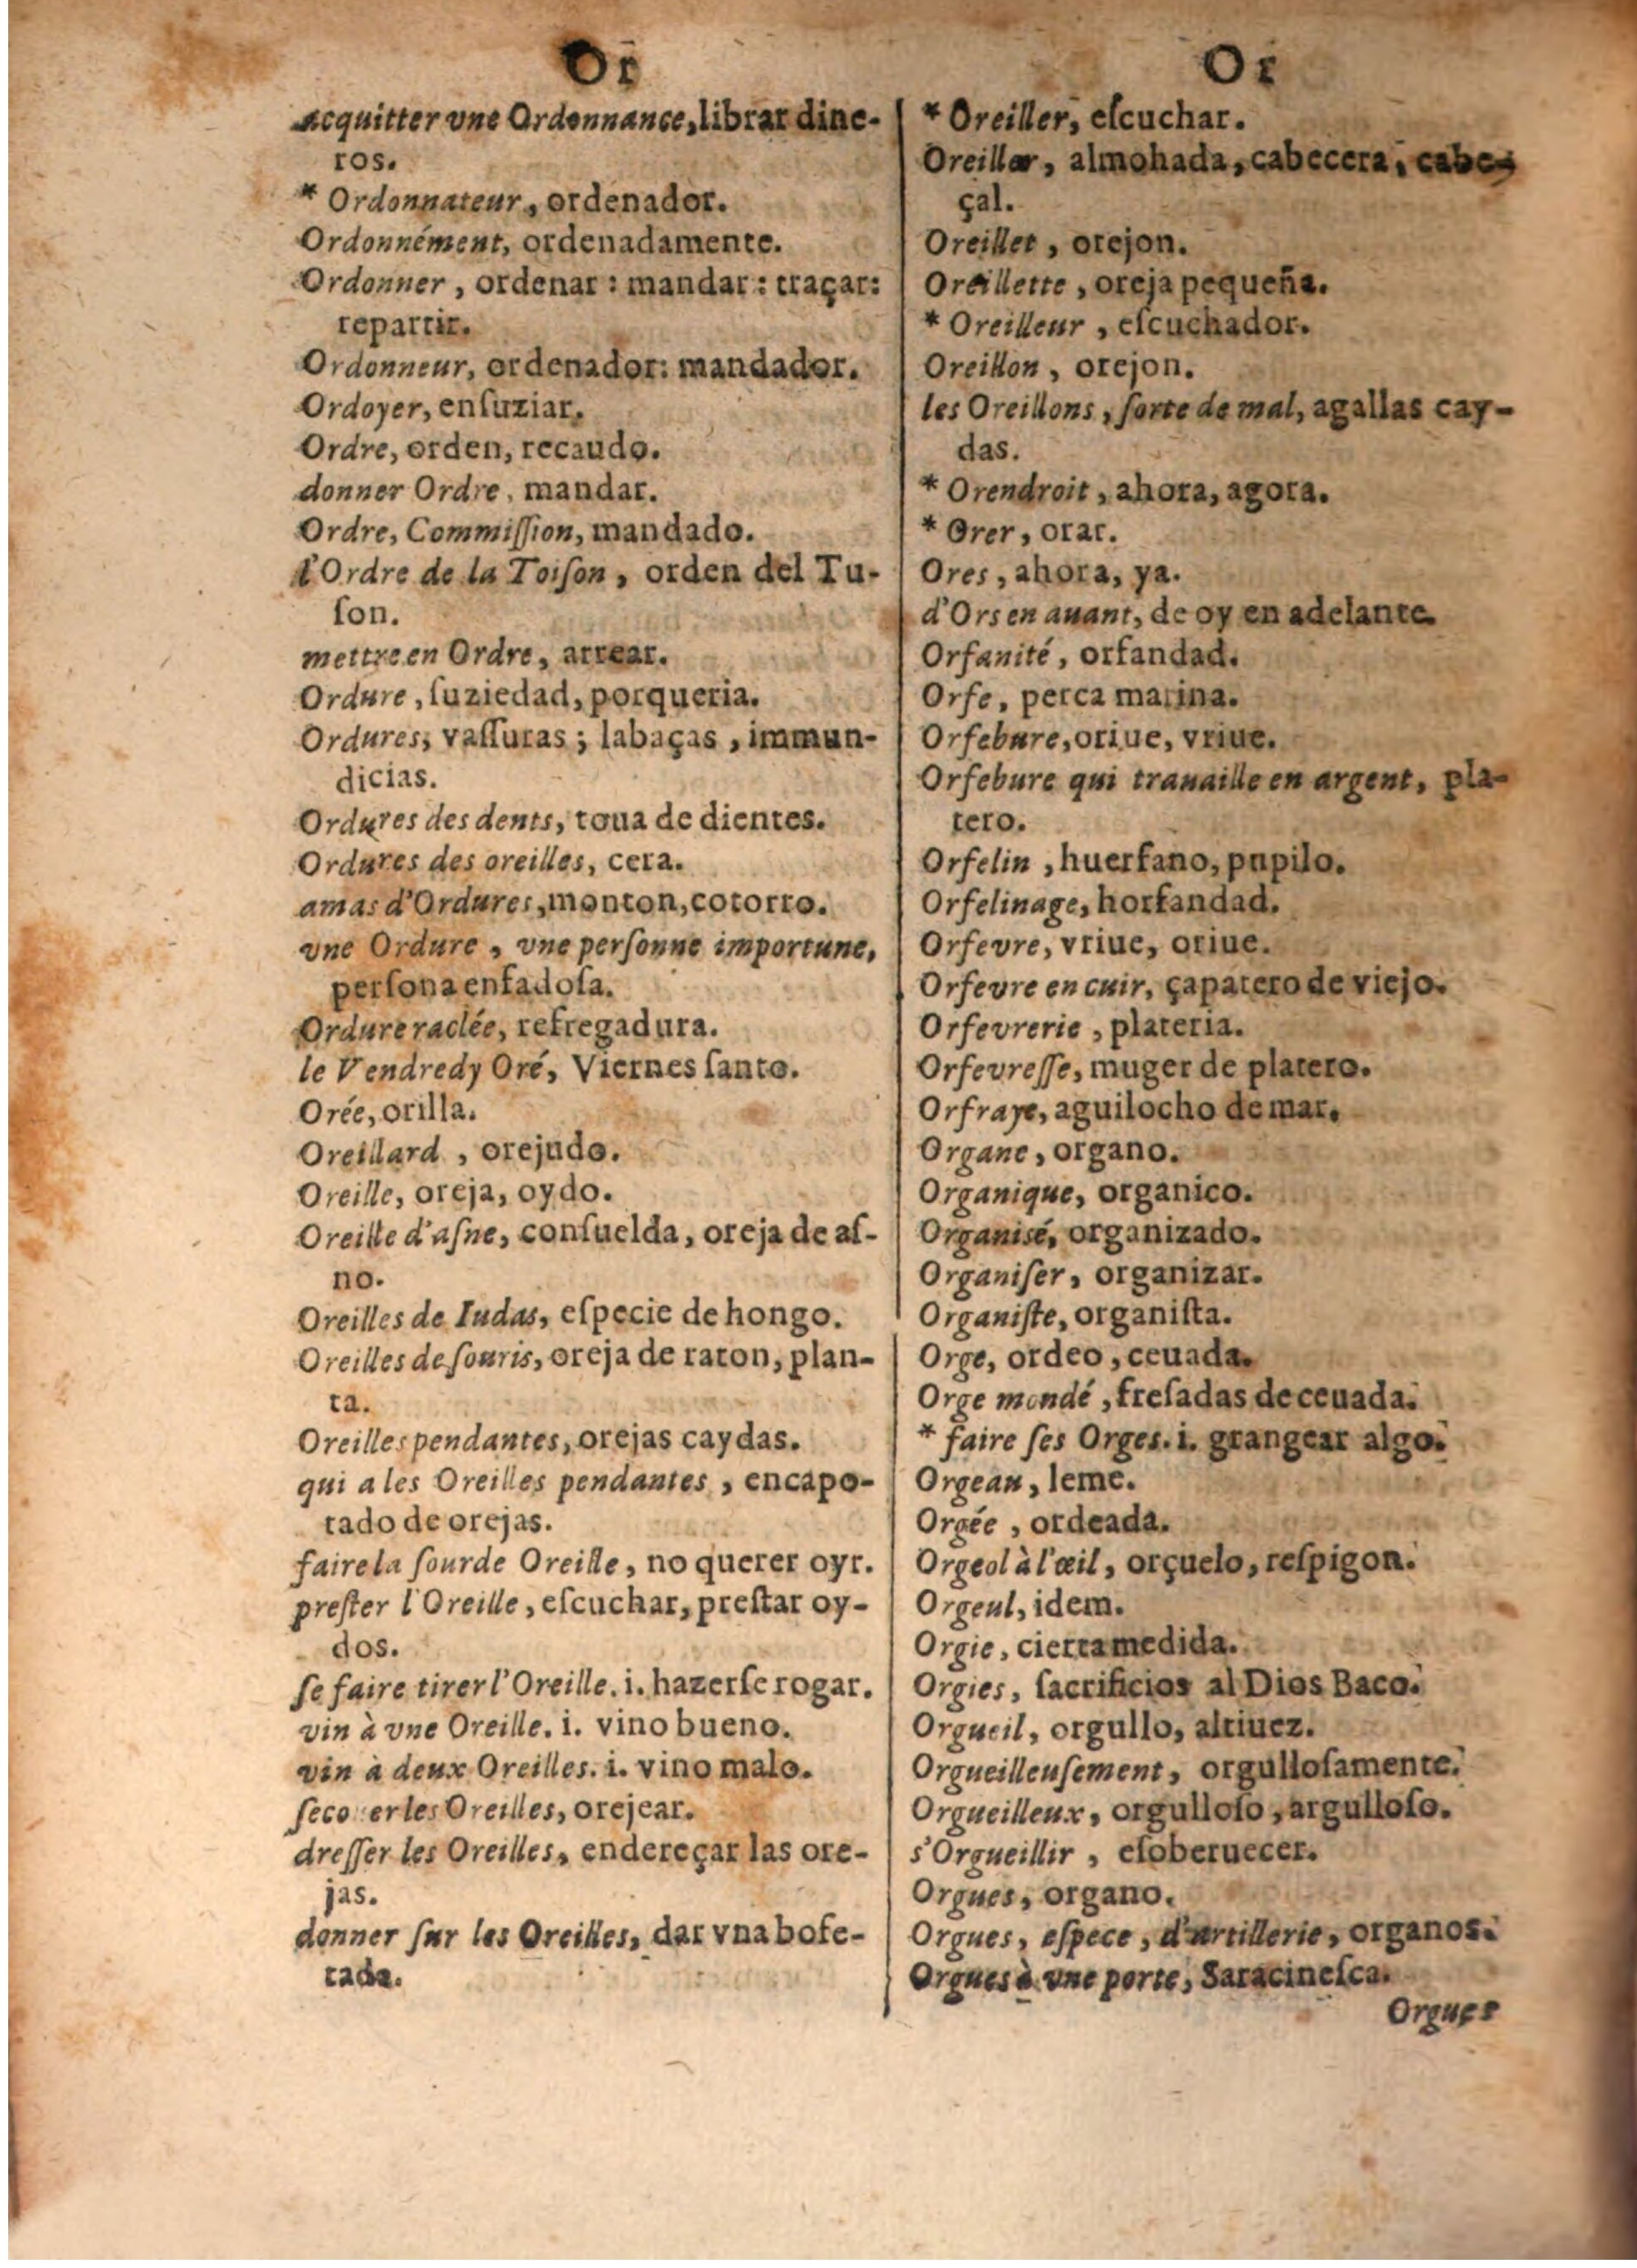 Or
acquitter vne Ordonnance, librar dine-
ros.
* Ordonnateur, ordenador.
Ordonnément, ordenadamente.
Ordonner, ordenar : mandar : traçar :
repartir.
Ordonneur, ordenador: mandador.
Ordoyer, enſuziar.
Ordre, orden, recaudo.
donner Ordre, mandar.
Ordre, Commiſſion, mandado.
l'Ordre de la Toiſon, orden del Tu-
ſon.
mettre en Ordre, arrear.
Ordure, ſuziedad, porqueria.
Ordures, vaſſuras ; labaças, immun-
dicias.
Ordures des dents, toua de dientes.
Ordures des oreilles, cera.
amas d'Ordures, monton, cotorro.
vne Ordure, vne perſonne importune,
perſona enfadoſa.
Ordure raclée, refregadura.
le Vendredy Oré, Viernes ſanto.
Orée, orilla.
Oreillard, orejudo.
Oreille, oreja, oydo.
Oreille d'aſne, conſuelda, oreja de aſ-
no.
Oreilles de Iudas, eſpecie de hongo.
Oreilles de ſouris, oreja de raton, plan-
ta.
Oreilles pendantes, orejas caydas.
qui a les Oreilles pendantes, encapo-
tado de orejas.
faire la ſourde Oreille, no querer oyr.
preſter l'Oreille, eſcuchar, preſtar oy-
dos.
ſe faire tirer l'Oreille. i. hazerſe rogar.
vin à vne Oreille. i. vino bueno.
vin à deux Oreilles. i. vino malo.
les Oreilles, orejear.
dreſſer les Oreilles, endereçar las ore-
jas.
donner ſur les Oreilles, dar vna bofe-
tada.
Or
* Oreiller, eſcuchar.
Oreiller, almohada, cabecera, cabe-
çal.
Oreillet, orejon.
Oreillette, oreja pequeña.
* Oreilleur, eſcuchador.
Oreillon, orejon.
les Oreillons, ſorte de mal, agallas cay-
das.
* Orendroit, ahora, agora.
* Orer, orar.
Ores, ahora, ya.
d'Ors en auant, de oy en adelante.
Orfanité, orfandad.
Orfe, perca marina.
Orfebure, oriue, vriue.
Orfebure qui trauaille en argent, pla-
tero.
Orfelin, huerfano, pupilo.
Orfelinage, horfandad.
Orfevre, vriue, oriue.
Orfevre en cuir, çapatero de viejo.
Orfevrerie, plateria.
Orfevreſſe, muger de platero.
Orfraye, aguilocho de mar.
Organe, organo.
Organique, organico.
Organisé, organizado.
Organiſer, organizar.
Organiſte, organiſta.
Orge, ordeo, ceuada.
Orge mondé, freſadas de ceuada.
* faire ſes Orges. i. grangear algo.
Orgeau, leme.
Orgée, ordeada.
Orgeol à l'œil, orçuelo, reſpigon.
Orgeul, idem.
Orgie, cierta medida.
Orgies, ſacrificios al Dios Baco.
Orgueil, orgullo, altiuez.
Orgueilleuſement, orgulloſamente.
Orgueilleux, orgulloſo, argulloſo.
s'Orgueillir, eſoberuecer.
Orgues, organo.
Orgues, eſpece, d'artillerie, organos.
Orgues à vne porte, Saracineſca.
Orgues